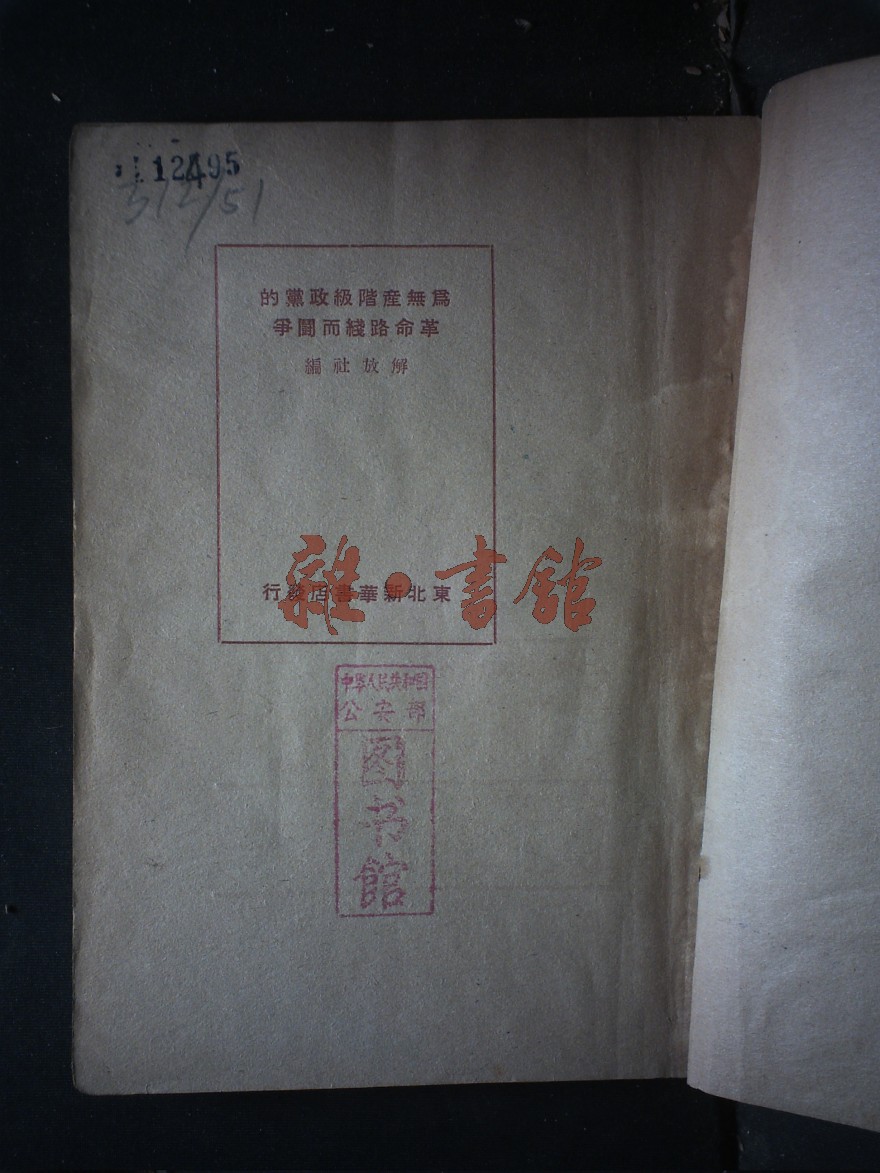 12495
512/51
爲無產階級政黨的
革命路綫而鬭爭
解放社編
東北新華書店發行
雜·書館
中华人民共和国
公安部
图书馆